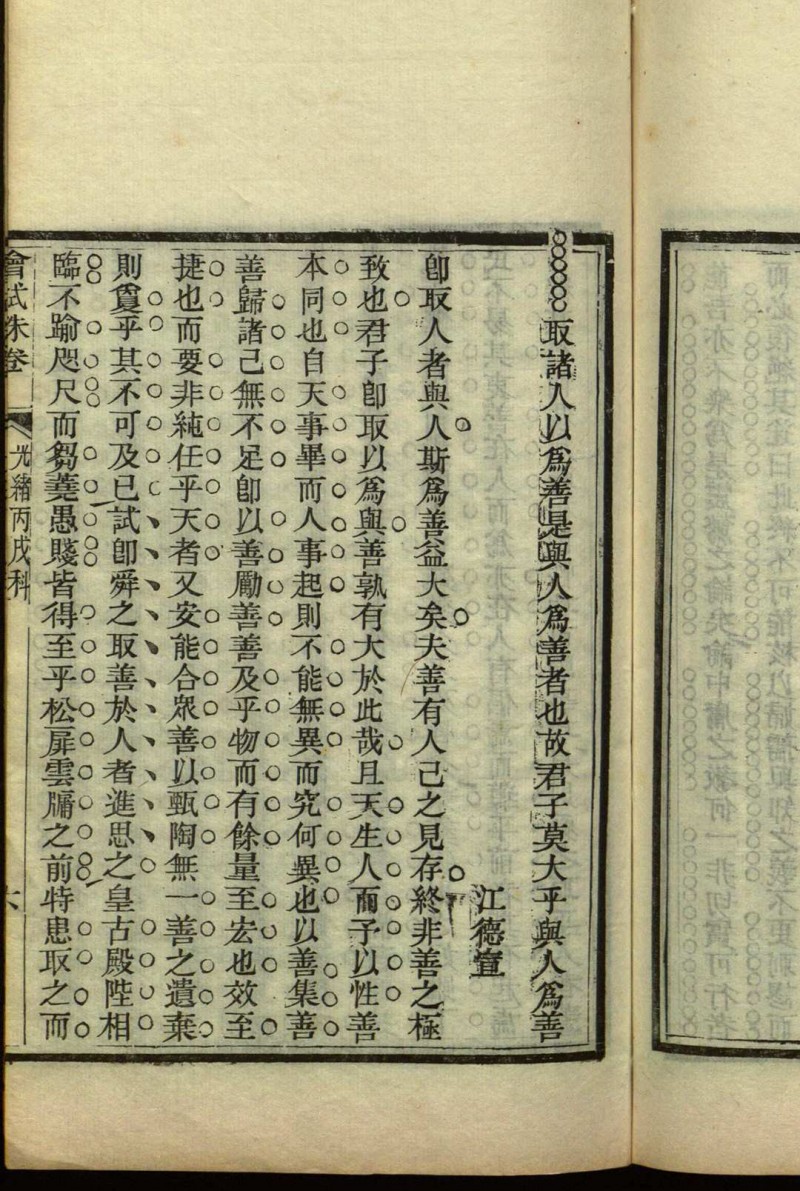 取諸人以為善是與人為善者也故君子莫大乎與人為善
江德宣
卽取人者與人斯為善益大矣夫善有人己之見存終非善之極
致也君子卽取以為與善孰有大於此哉且天生人而予以性善
本同也自天事畢而人事起則不能無異而究何異也以善集善
善歸諸己無不足卽以善勵善善及乎物而有餘量至宏也效至
捷也而要非純任乎天者又安能合眾善以甄陶無一善之遺棄
則敻乎其不可及已試卽舜之取善於人者進思之皇古殿陛相
臨不踰咫尺而芻蕘愚賤皆得至乎松扉雲牖之前特患取之而
會試硃卷
光緒丙戌科
六